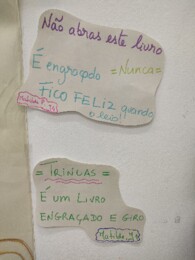 Não abras este livro
É engraçado =Nunca=
FICO FELIZ quando
o leio!
Matilde
= TRINCAS =
É UM LIVRO
ENGRAÇADO E GIRO
Matilde